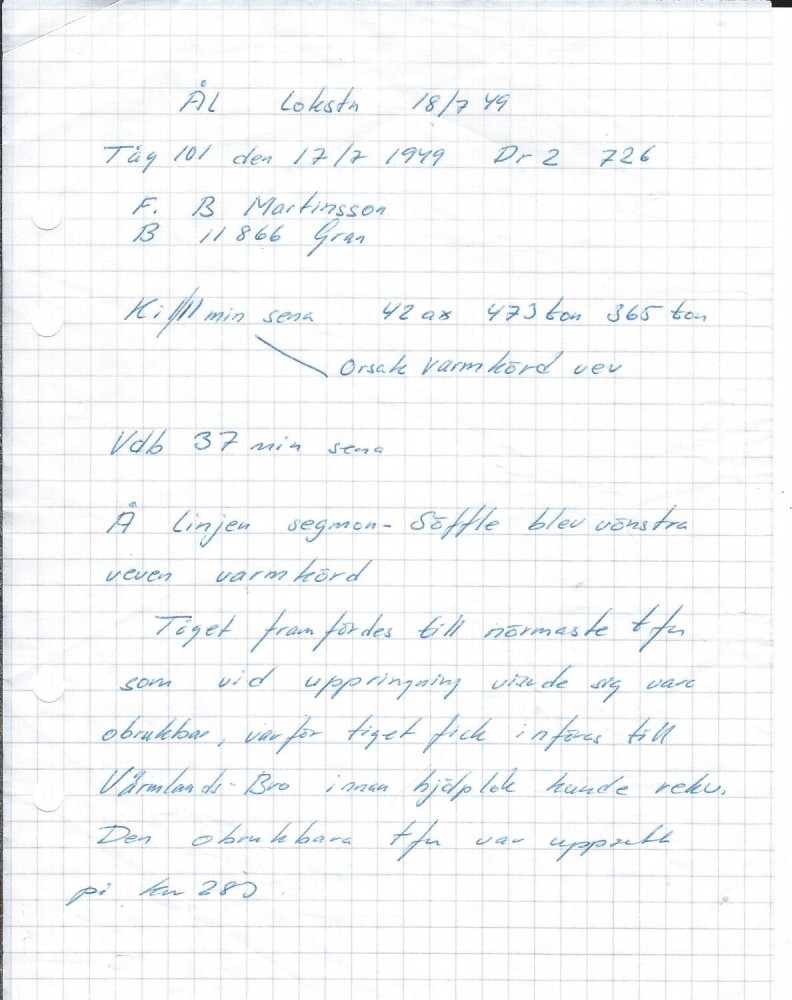 ÅL Lokstn 18/7 49
Tåg 101 den 17/7 1949 Dr 2 726
F. B Martinsson
B 11866 Gran
Ki min sena 42 ax 473 ton 365 ton
Orsak varmkörd vev
Vdb 37 min sena
Å linjen segmon - Säffle blev vänstra
veven varmkörd
Tåget framfördes till närmaste tfn
som vid uppringning visade sig vara
obrukbar, varför tåget fick införas till
Värmlands-Bro innan hjälplok kunde rekv.
Den obrukbara tfn var uppsatt
på km